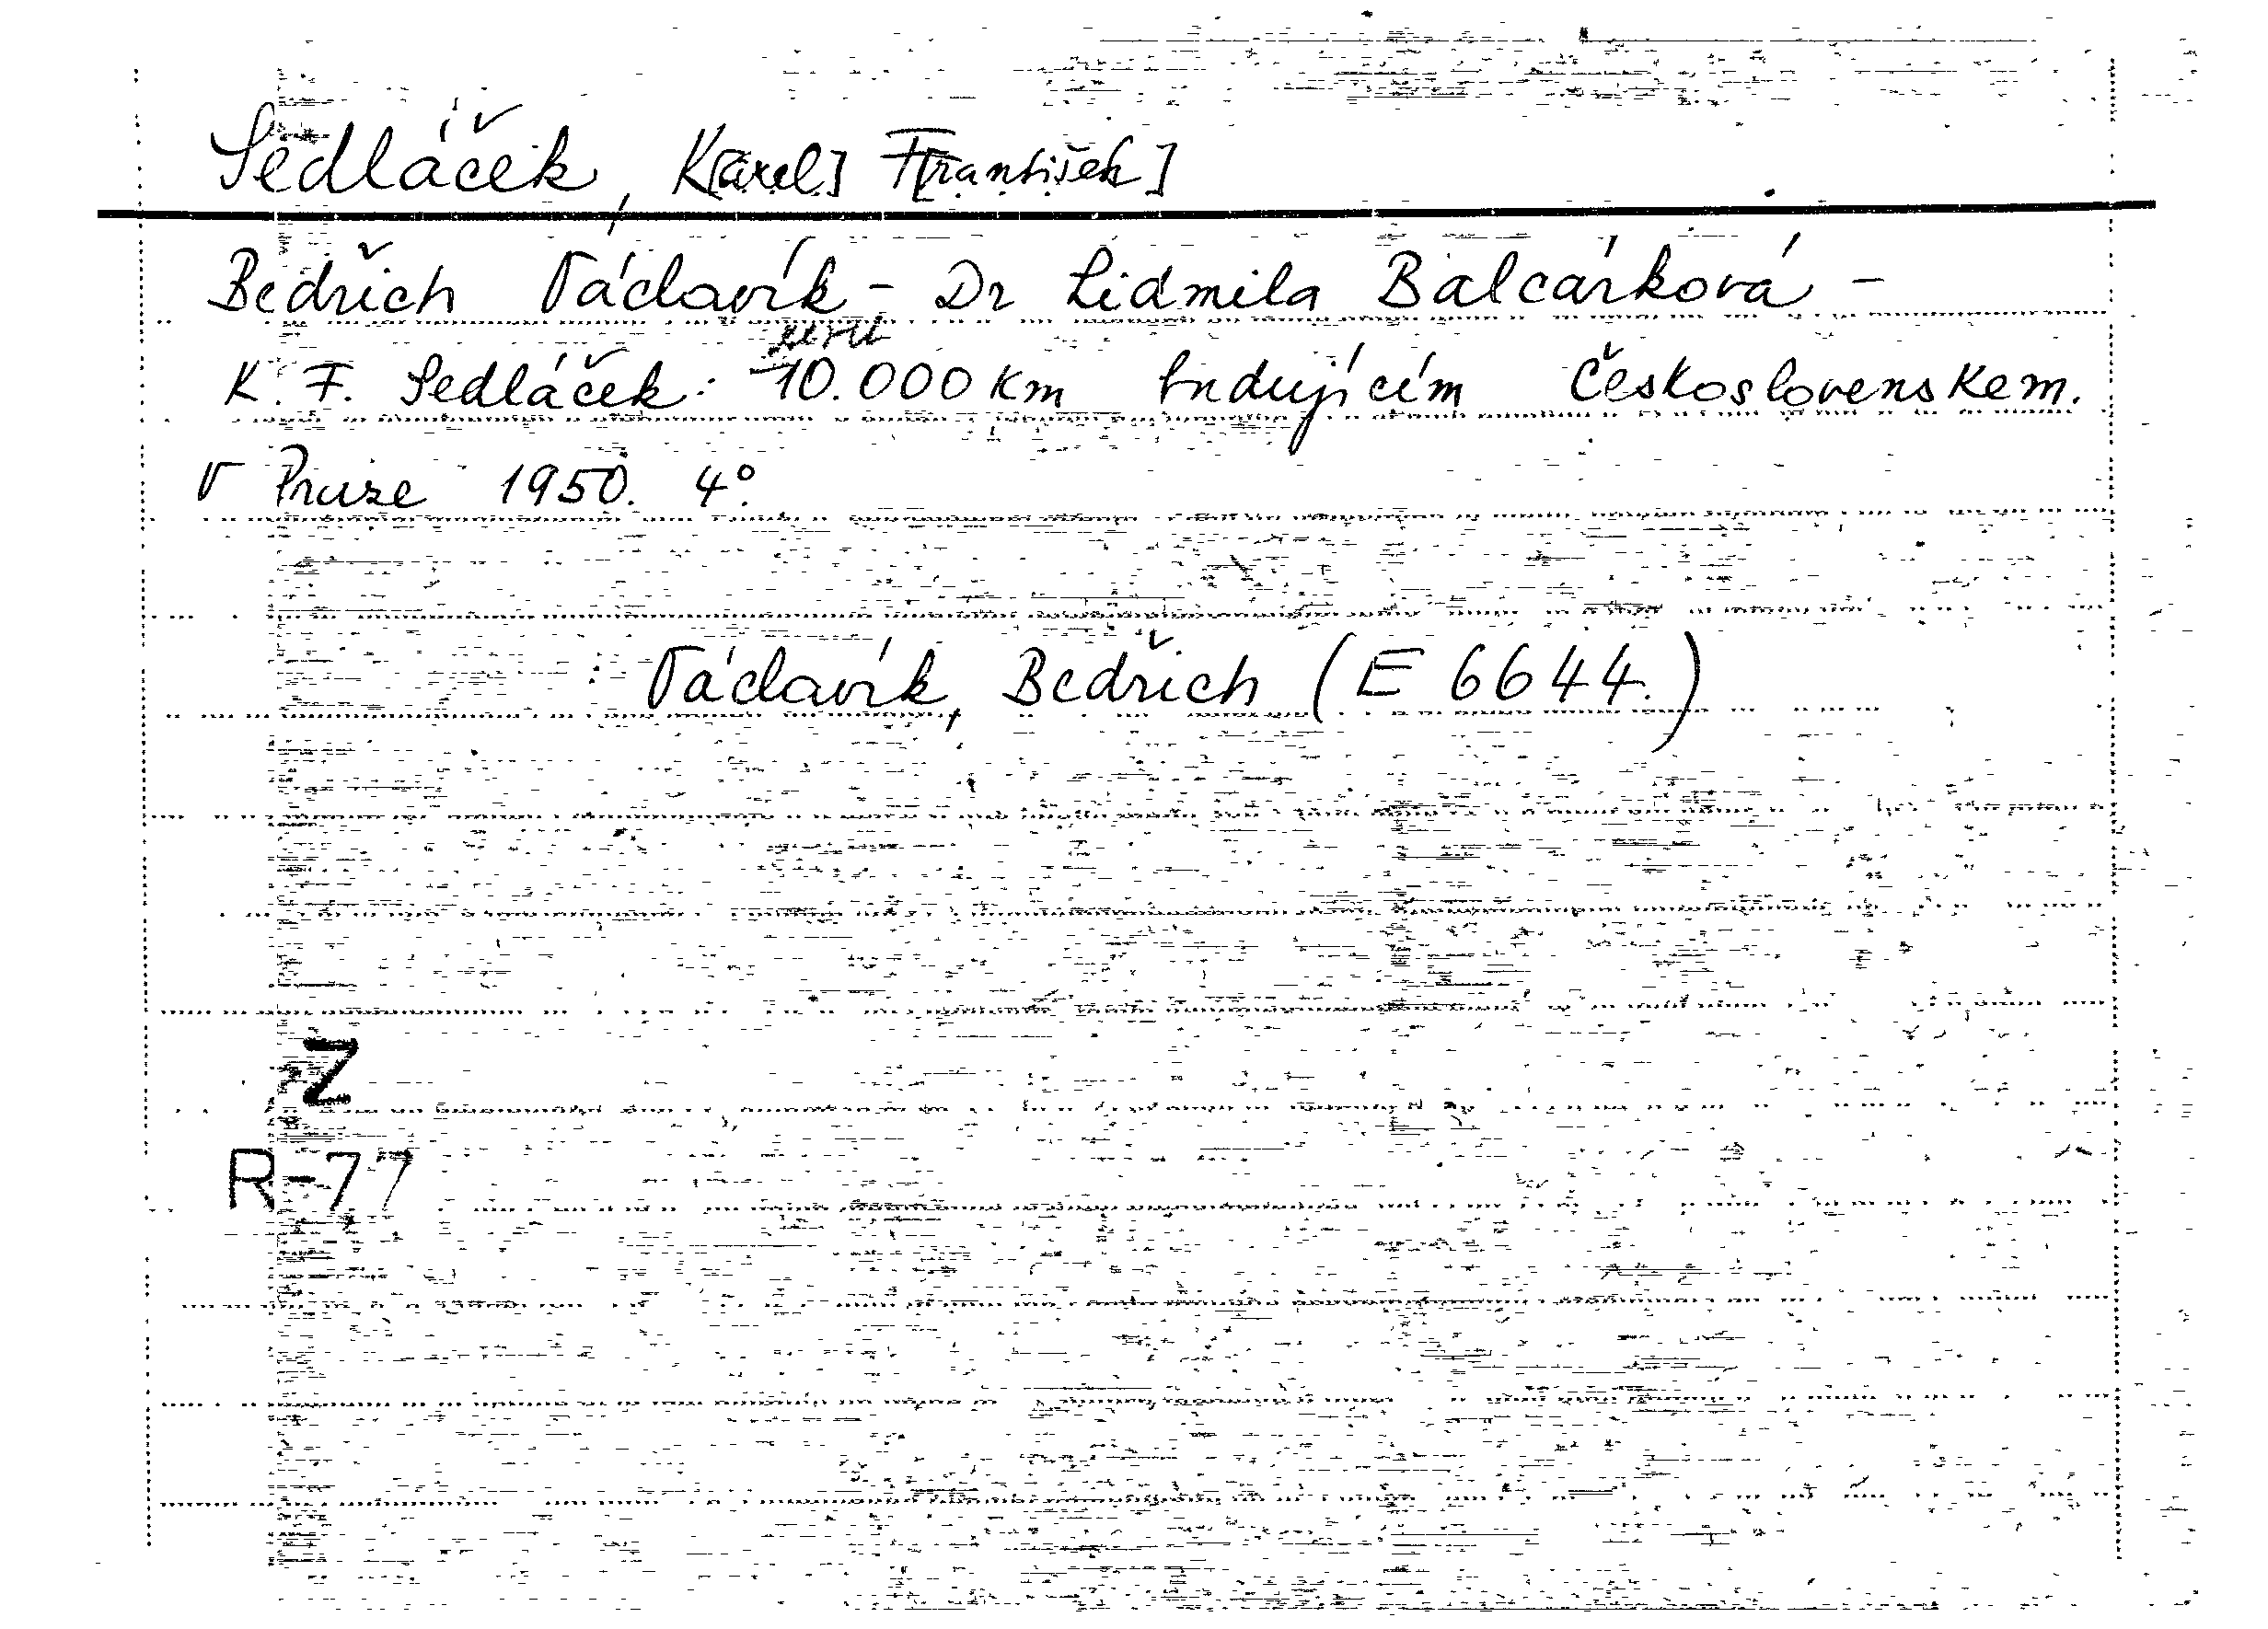 Sedláček, K[arel] F[rantišek]
Bedřich Václavík - Dr Lidmila Balcárková -
K. F. Sedláček: 10.000 km budujícím Československem.
V Praze 1950. 4°.
Václavík, Bedřich (E 6644.)
Z
R-77